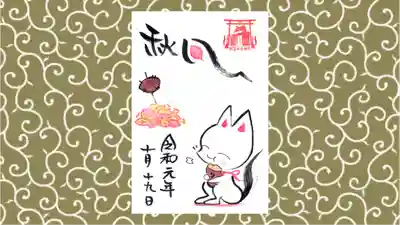 秋
令和元年
十月十九日